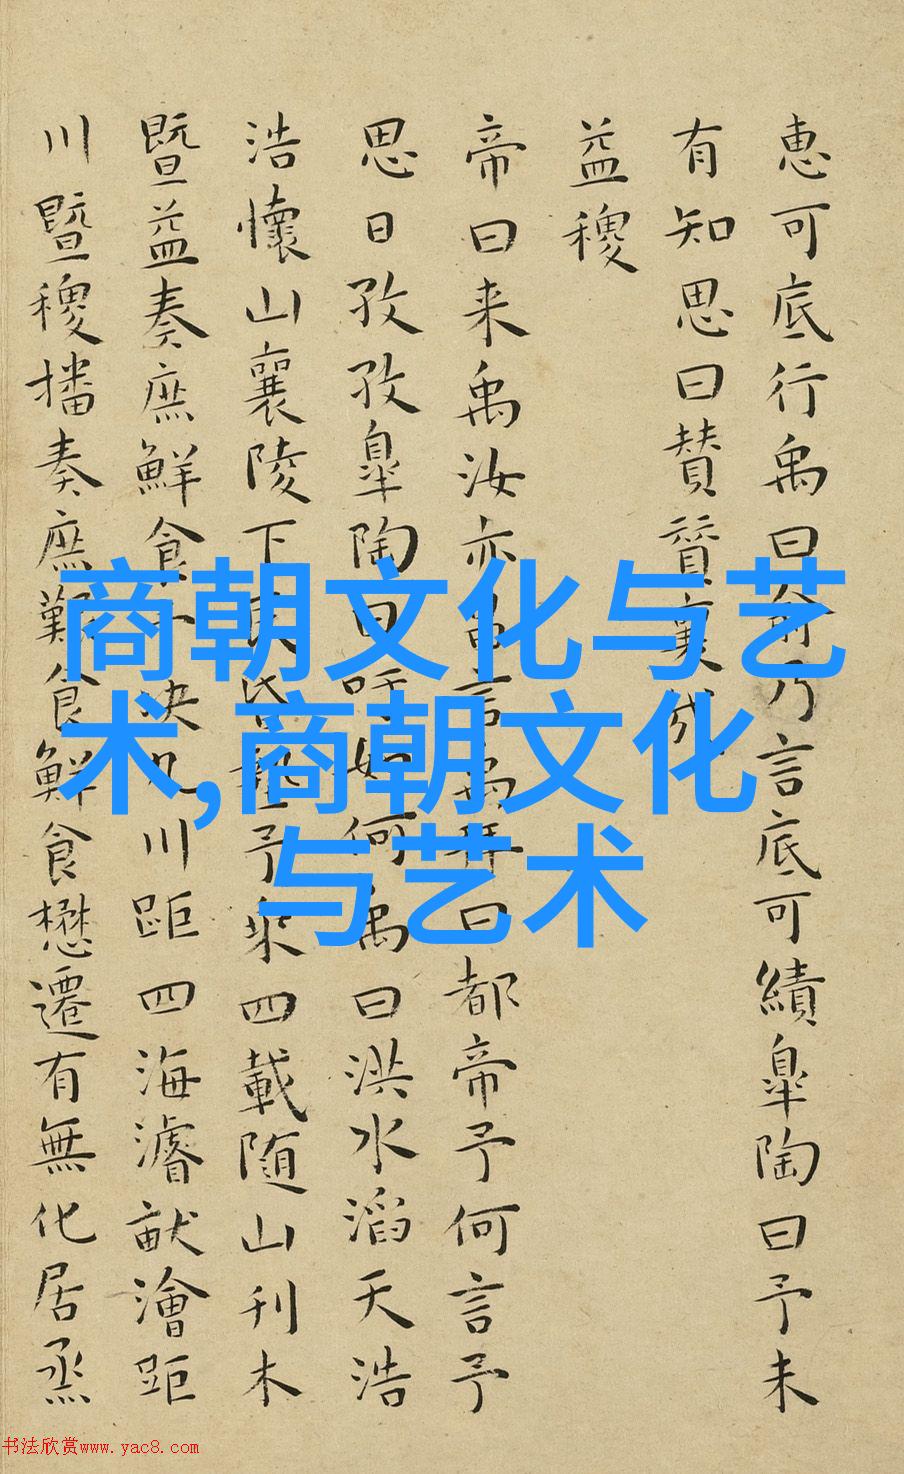 惠可底行禹曰俞乃言底可績皐陶曰予未
有知思曰賛賛襄哉
益稷
帝曰来禹汝亦昌言禹拜曰都帝予何言予
思日孜孜皐陶曰吁如何禹曰洪水滔天浩
浩懷山襄陵下民昏墊予乘四載随山刊木
暨益奏庶鮮食予决九川距四海濬畎澮距
川暨稷播奏庶艱食鮮食懋遷有無化居烝
商朝文化与艺
术,商朝文化
与艺术
书法欣赏www.yac8.com